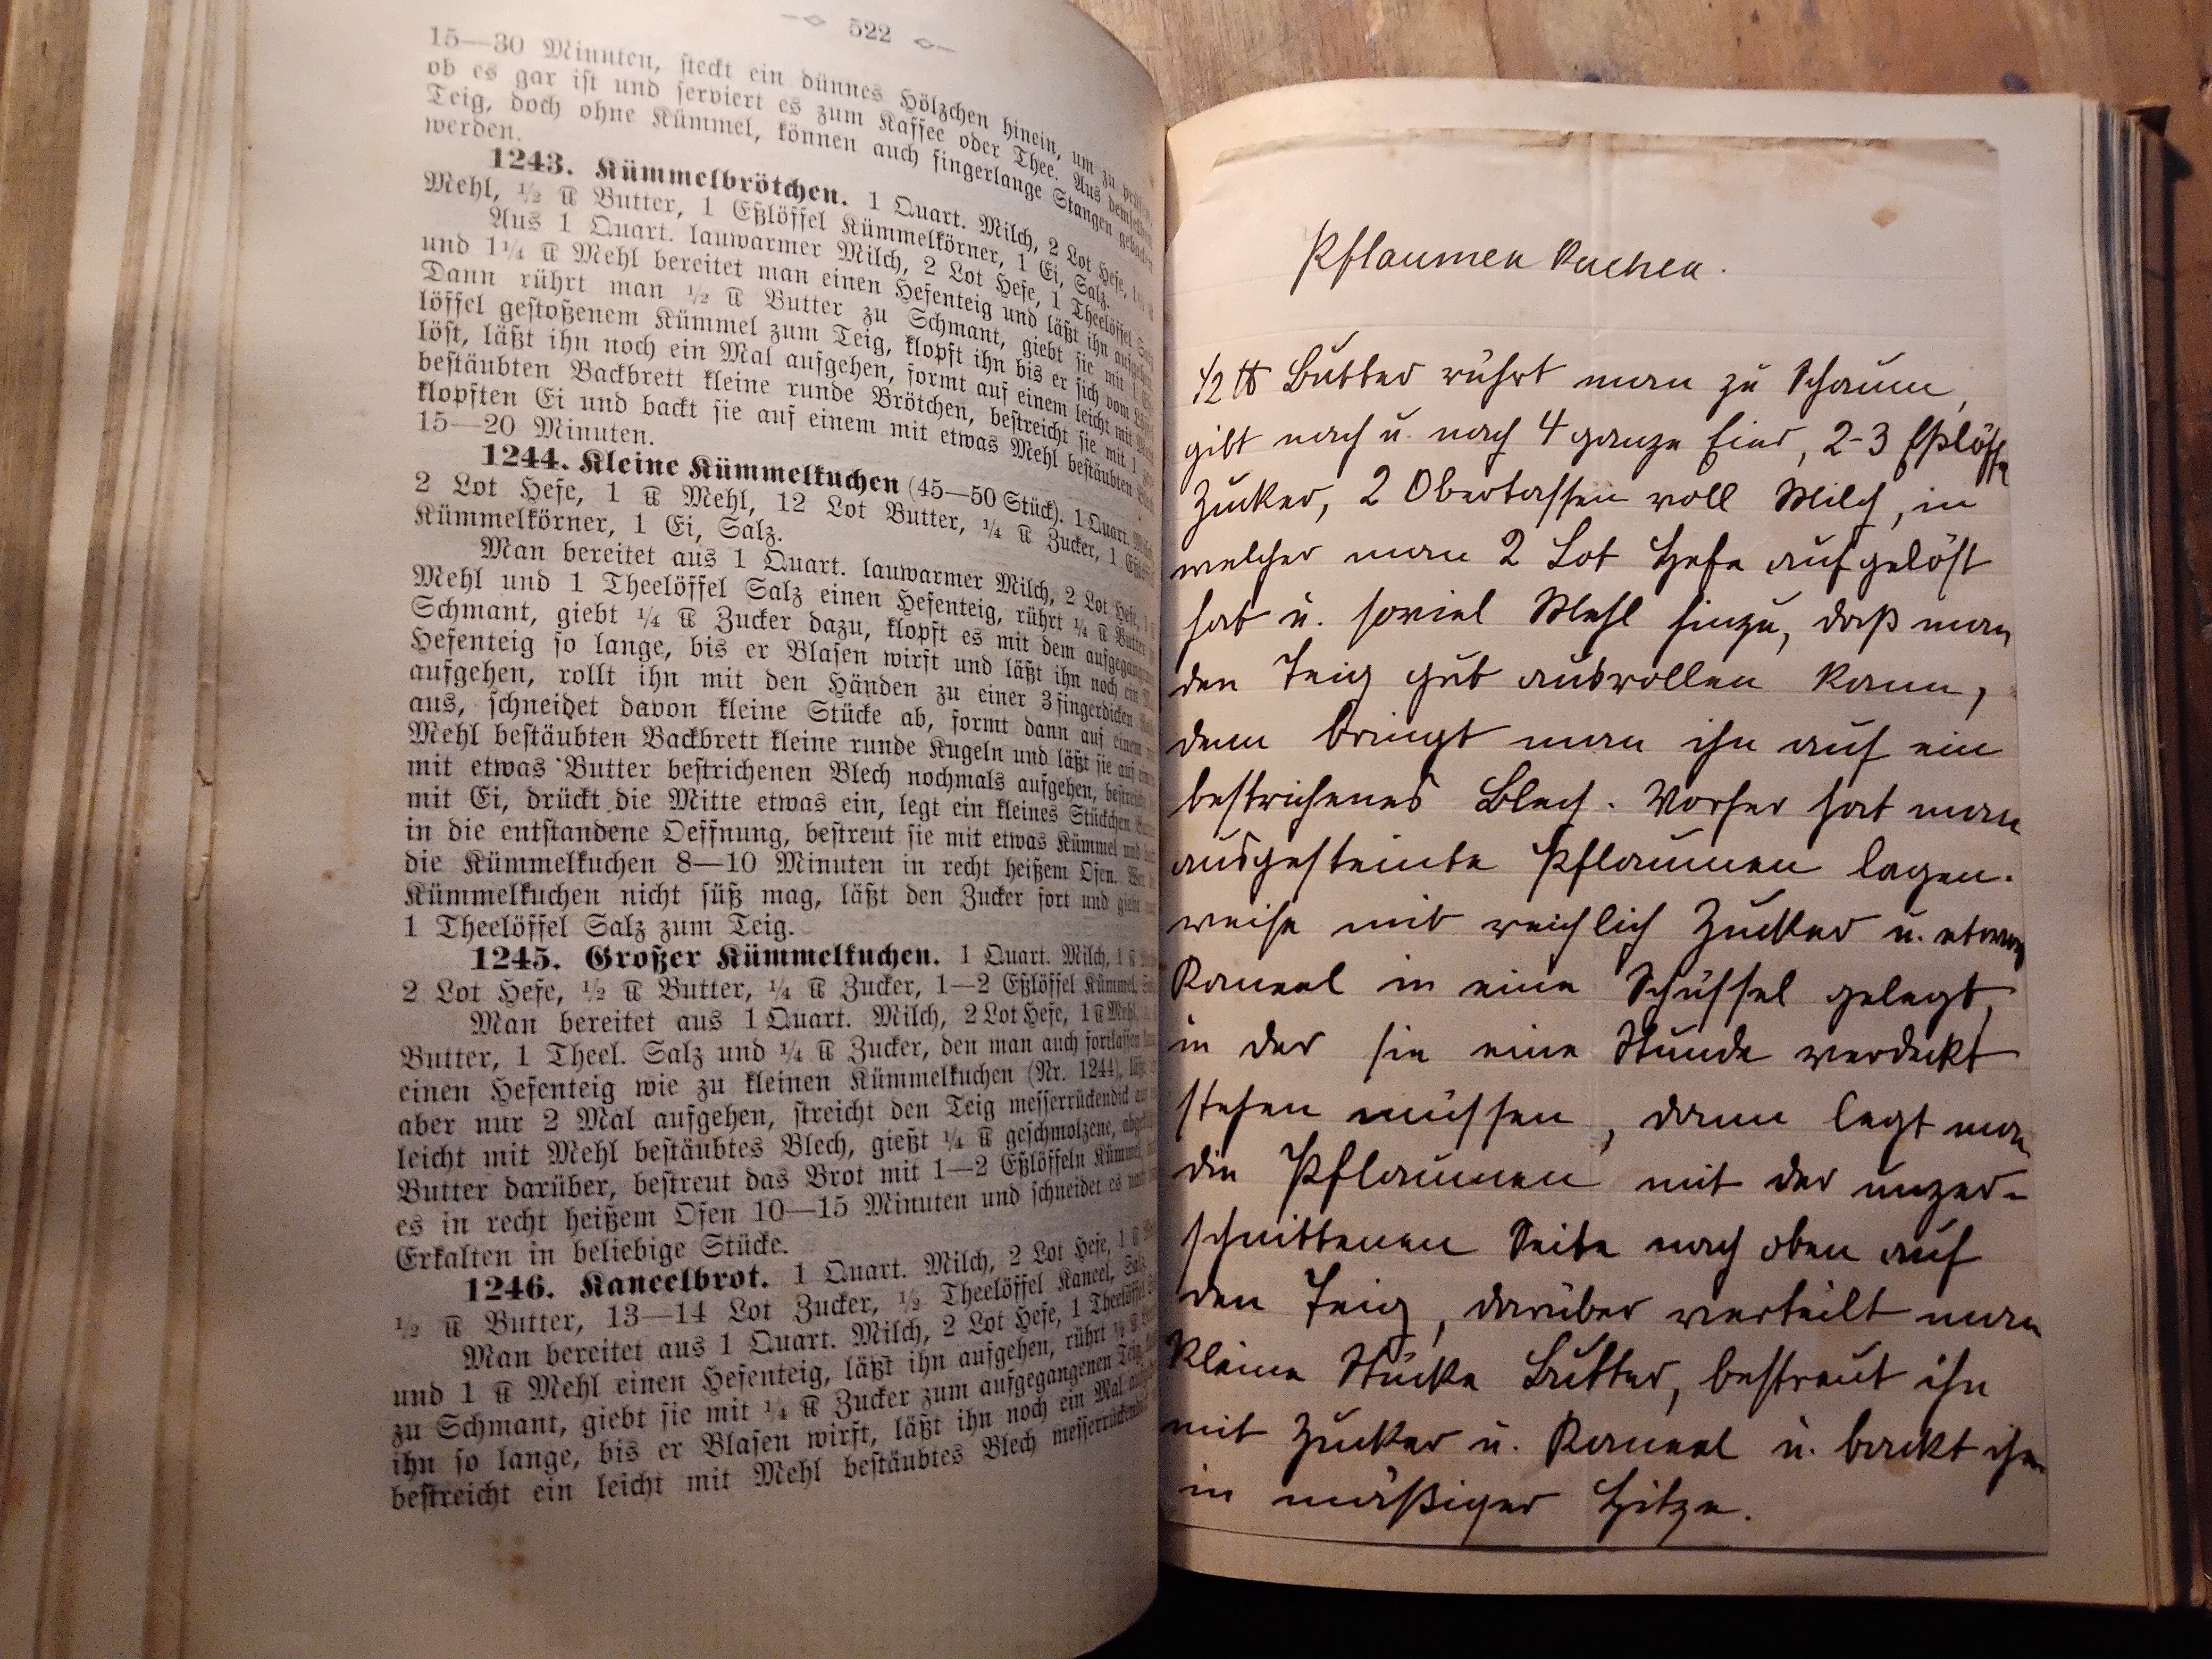 522
15—30 Minuten, steckt ein dünnes Hölzchen hinein, um zu prüfen,
ob es gar ist und serviert es zum Kaffee oder Thee. Aus demselben
Teig, doch ohne Kümmel, können auch fingerlange Stangen gebacken
werden.
1243. Kümmelbrötchen. 1 Quart. Milch, 2 Lot Hefe,
Mehl, ½ ℔ Butter, 1 Eßlöffel Kümmelkörner, 1 Ei, Salz.
Aus 1 Quart. lauwarmer Milch, 2 Lot Hefe, 1 Theelöffel Salz
und 1¼ ℔ Mehl bereitet man einen Hefenteig und läßt ihn aufgehen.
Dann rührt man ½ ℔ Butter zu Schmant, giebt sie mit 1
löffel gestoßenem Kümmel zum Teig, klopft ihn bis er sich vom Löffel
löst, läßt ihn noch ein Mal aufgehen, formt auf einem leicht mit Mehl
bestäubten Backbrett kleine runde Brötchen, bestreicht sie mit 1
klopften Ei und backt sie auf einem mit etwas Mehl bestäubten Blech
15—20 Minuten.
1244. Kleine Kümmelkuchen (45—50 Stück). 1 Quart. Milch,
2 Lot Hefe, 1 ℔ Mehl, 12 Lot Butter, ¼ ℔ Zucker, 1 Eßlöffel
Kümmelkörner, 1 Ei, Salz.
Man bereitet aus 1 Quart. lauwarmer Milch, 2 Lot Hefe, 1 ℔
Mehl und 1 Theelöffel Salz einen Hefenteig, rührt ¼ ℔ Butter zu
Schmant, giebt ¼ ℔ Zucker dazu, klopft es mit dem aufgegangenen
Hefenteig so lange, bis er Blasen wirft und läßt ihn noch ein Mal
aufgehen, rollt ihn mit den Händen zu einer 3 fingerdicken
aus, schneidet davon kleine Stücke ab, formt dann auf einem mit
Mehl bestäubten Backbrett kleine runde Kugeln und läßt sie auf einem
mit etwas Butter bestrichenen Blech nochmals aufgehen, bestreicht
mit Ei, drückt die Mitte etwas ein, legt ein kleines Stückchen Butter
in die entstandene Oeffnung, bestreut sie mit etwas Kümmel und
die Kümmelkuchen 8—10 Minuten in recht heißem Ofen. Wer
Kümmelkuchen nicht süß mag, läßt den Zucker fort und giebt
1 Theelöffel Salz zum Teig.
1245. Großer Kümmelkuchen. 1 Quart. Milch, 1 ℔
2 Lot Hefe, ½ ℔ Butter, ¼ ℔ Zucker, 1—2 Eßlöffel Kümmel,
Man bereitet aus 1 Quart. Milch, 2 Lot Hefe, 1 ℔ Mehl,
Butter, 1 Theel. Salz und ¼ ℔ Zucker, den man auch fortlassen
einen Hefenteig wie zu kleinen Kümmelkuchen (Nr. 1244), läßt
aber nur 2 Mal aufgehen, streicht den Teig messerrückendick auf
leicht mit Mehl bestäubtes Blech, gießt ¼ ℔ geschmolzene,
Butter darüber, bestreut das Brot mit 1—2 Eßlöffeln Kümmel,
es in recht heißem Ofen 10—15 Minuten und schneidet es nach
Erkalten in beliebige Stücke.
1246. Kaneelbrot. 1 Quart. Milch, 2 Lot Hefe, 1 ℔
½ ℔ Butter, 13—14 Lot Zucker, ½ Theelöffel Kaneel, Salz.
Man bereitet aus 1 Quart. Milch, 2 Lot Hefe, 1 Theelöffel
und 1 ℔ Mehl einen Hefenteig, läßt ihn aufgehen, rührt ½ ℔
zu Schmant, giebt sie mit ¼ ℔ Zucker zum aufgegangenen Teig,
ihn so lange, bis er Blasen wirft, läßt ihn noch ein Mal
bestreicht ein leicht mit Mehl bestäubtes Blech messerrückendick
Pflaumen Kuchen.
½ ℔ Butter rührt man zu Schaum,
gibt nach u. nach 4 ganze Eier, 2-3 Eßlöffel
Zucker, 2 Obertassen voll Milch, in
welcher man 2 Lot Hefe aufgelöst
hat u. soviel Mehl hinzu, daß man
den Teig gut ausrollen kann,
dann bringt man ihn auf ein
bestrichenes Blech. Vorher hat man
ausgesteinte Pflaumen lagen-
weise mit reichlich Zucker u. etwas
Kaneel in eine Schüssel gelegt,
in der sie eine Stunde verdeckt
stehen müssen, dann legt man
die Pflaumen mit der unzer-
schnittenen Seite nach oben auf
den Teig, darüber verteilt man
kleine Stücke Butter, bestreut ihn
mit Zucker u. Kaneel u. backt ihn
in mäßiger Hitze.